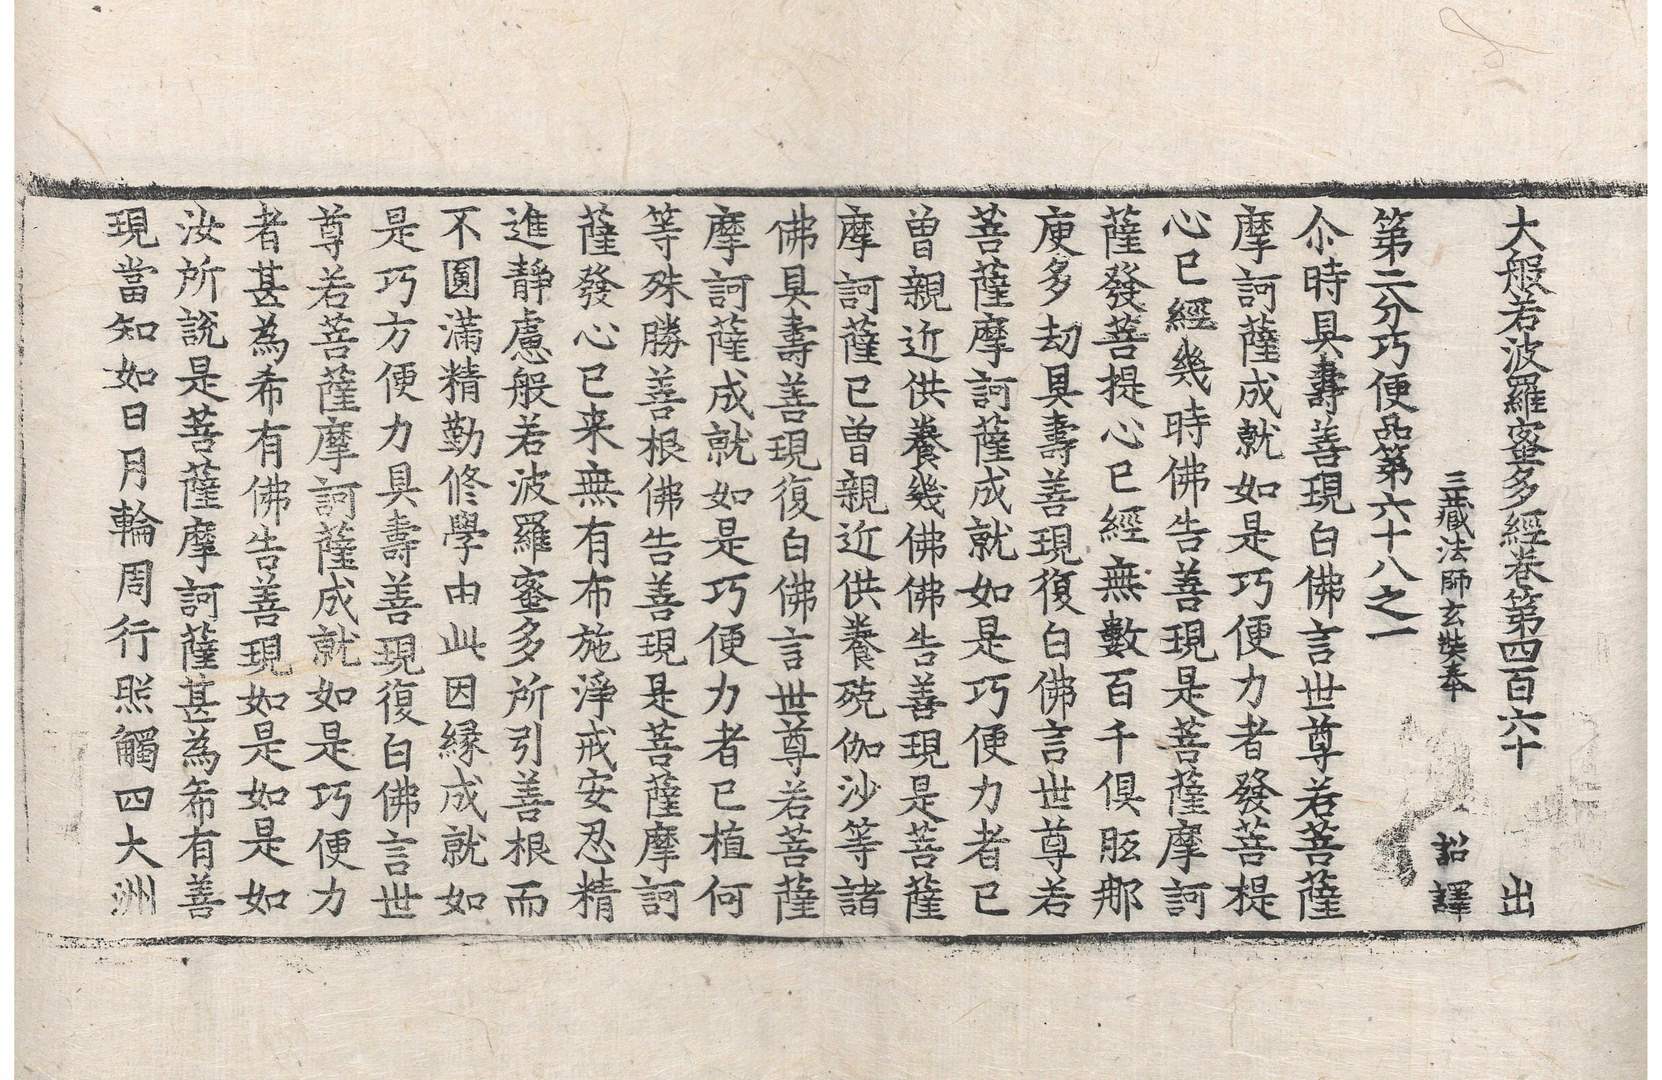 大般若波羅蜜多經卷第四百六十 出
三藏法師玄奘奉 詔譯
第二分巧便品第六十八之一
尒時具壽善現白佛言世尊若菩薩
摩訶薩成就如是巧便力者發菩提
心已經幾時佛告善現是菩薩摩訶
薩發菩提心已經無數百千俱胝那
庾多劫具壽善現復白佛言世尊若
菩薩摩訶薩成就如是巧便力者已
曾親近供養幾佛佛告善現是菩薩
摩訶薩已曾親近供養殑伽沙等諸
佛具壽善現復白佛言世尊若菩薩
摩訶薩成就如是巧便力者已植何
等殊勝善根佛告善現是菩薩摩訶
薩發心已来無有布施淨戒安忍精
進靜慮般若波羅蜜多所引善根而
不圓滿精勤修學由此因緣成就如
是巧方便力具壽善現復白佛言世
尊若菩薩摩訶薩成就如是巧便力
者甚為希有佛告善現如是如是如
汝所說是菩薩摩訶薩甚為希有善
現當知如日月輪周行照觸四大洲